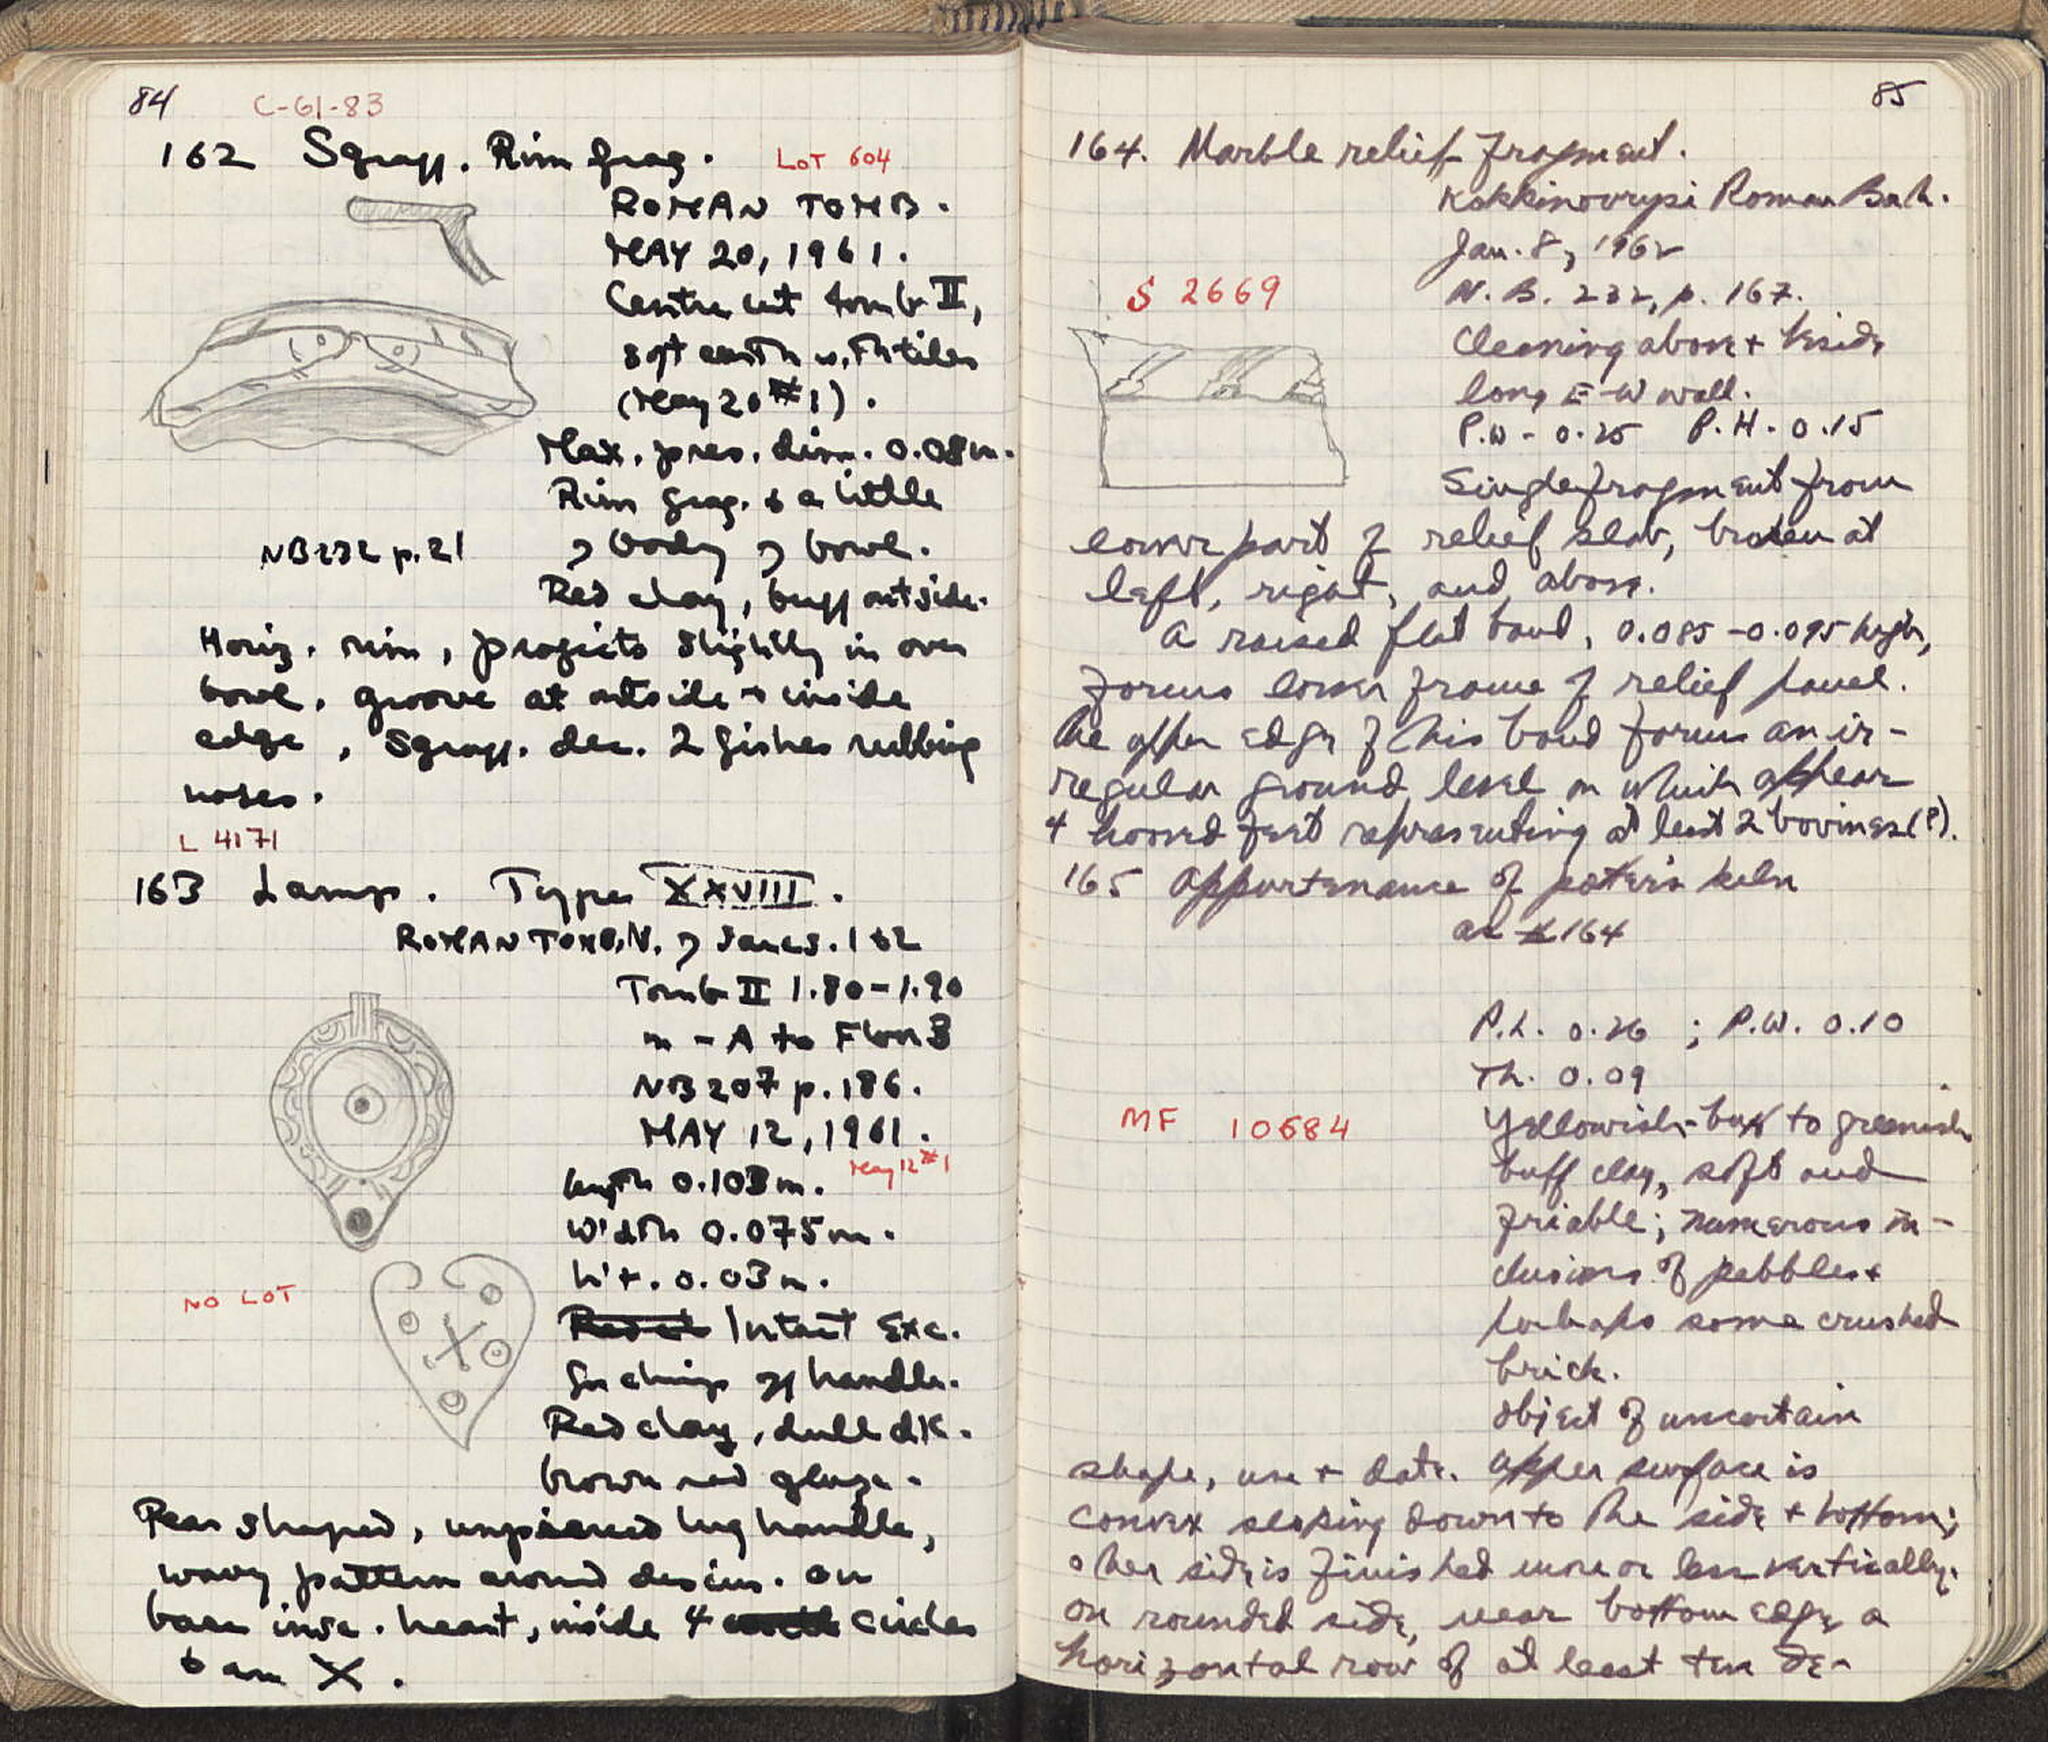 84
C-61-83
162 Sgraff. Rim frag.
LOT 604
ROMAN TOMB.
MAY 20, 1961.
Centre cut tomb II,
soft earth with tiles
(May 20 #1).
Max. pres. dim. 0.08m.
Rim frag. & a little
NB232 p.21
of body of bowl.
Red clay, buff outside.
Horiz. rim, projects slightly in over
bowl. groove at outside + inside
edge, Sgraff. dec. 2 fishes rubbing
noses.
L 4171
163 Lamp. Type XXVIII.
ROMAN TOMB, N. of Sarc. 162
Tomb II 1.80-1.90
m - A to Floor 3
NB 207 p. 186.
MAY 12, 1961.
May 12 #1
length 0.103m.
Width 0.075m.
h't. 0.03m.
NO LOT
Red cl Intact Exc.
for chip off handle.
Red clay, dull dk.
brown red glaze.
Pear shaped, unpierced lug handle,
wavy pattern around discus. On
base inse. heart, inside 4 circles
& an X.
85
164. Marble relief fragment.
Kokkinovrysi Roman Bath.
Jan. 8, 1962
S 2669
N.B. 232, p. 167.
Cleaning above + beside
long E-W wall.
P.W - 0.25 P.H. 0.15
Single fragment from
lower part of relief slab, broken at
left, right, and above.
A raised flat band, 0.085-0.095 high,
forms lower frame of relief panel.
The upper edge of this band forms an ir-
regular ground level on which appear
4 hooved feet representing at least 2 bovines(?).
165 Appurtenance of potter's kiln
as #164
P.L. 0.26 ; P.W. 0.10
Th. 0.09
MF 10684
Yellowish-buff to greenish
buff clay, soft and
friable; numerous in-
clusions of pebbles +
perhaps some crushed
brick.
Object of uncertain
shape, use + date. Upper surface is
convex sloping down to the side + bottom;
other side is finished more or less vertically.
On rounded side, near bottom edge a
horizontal row of at least ten de-